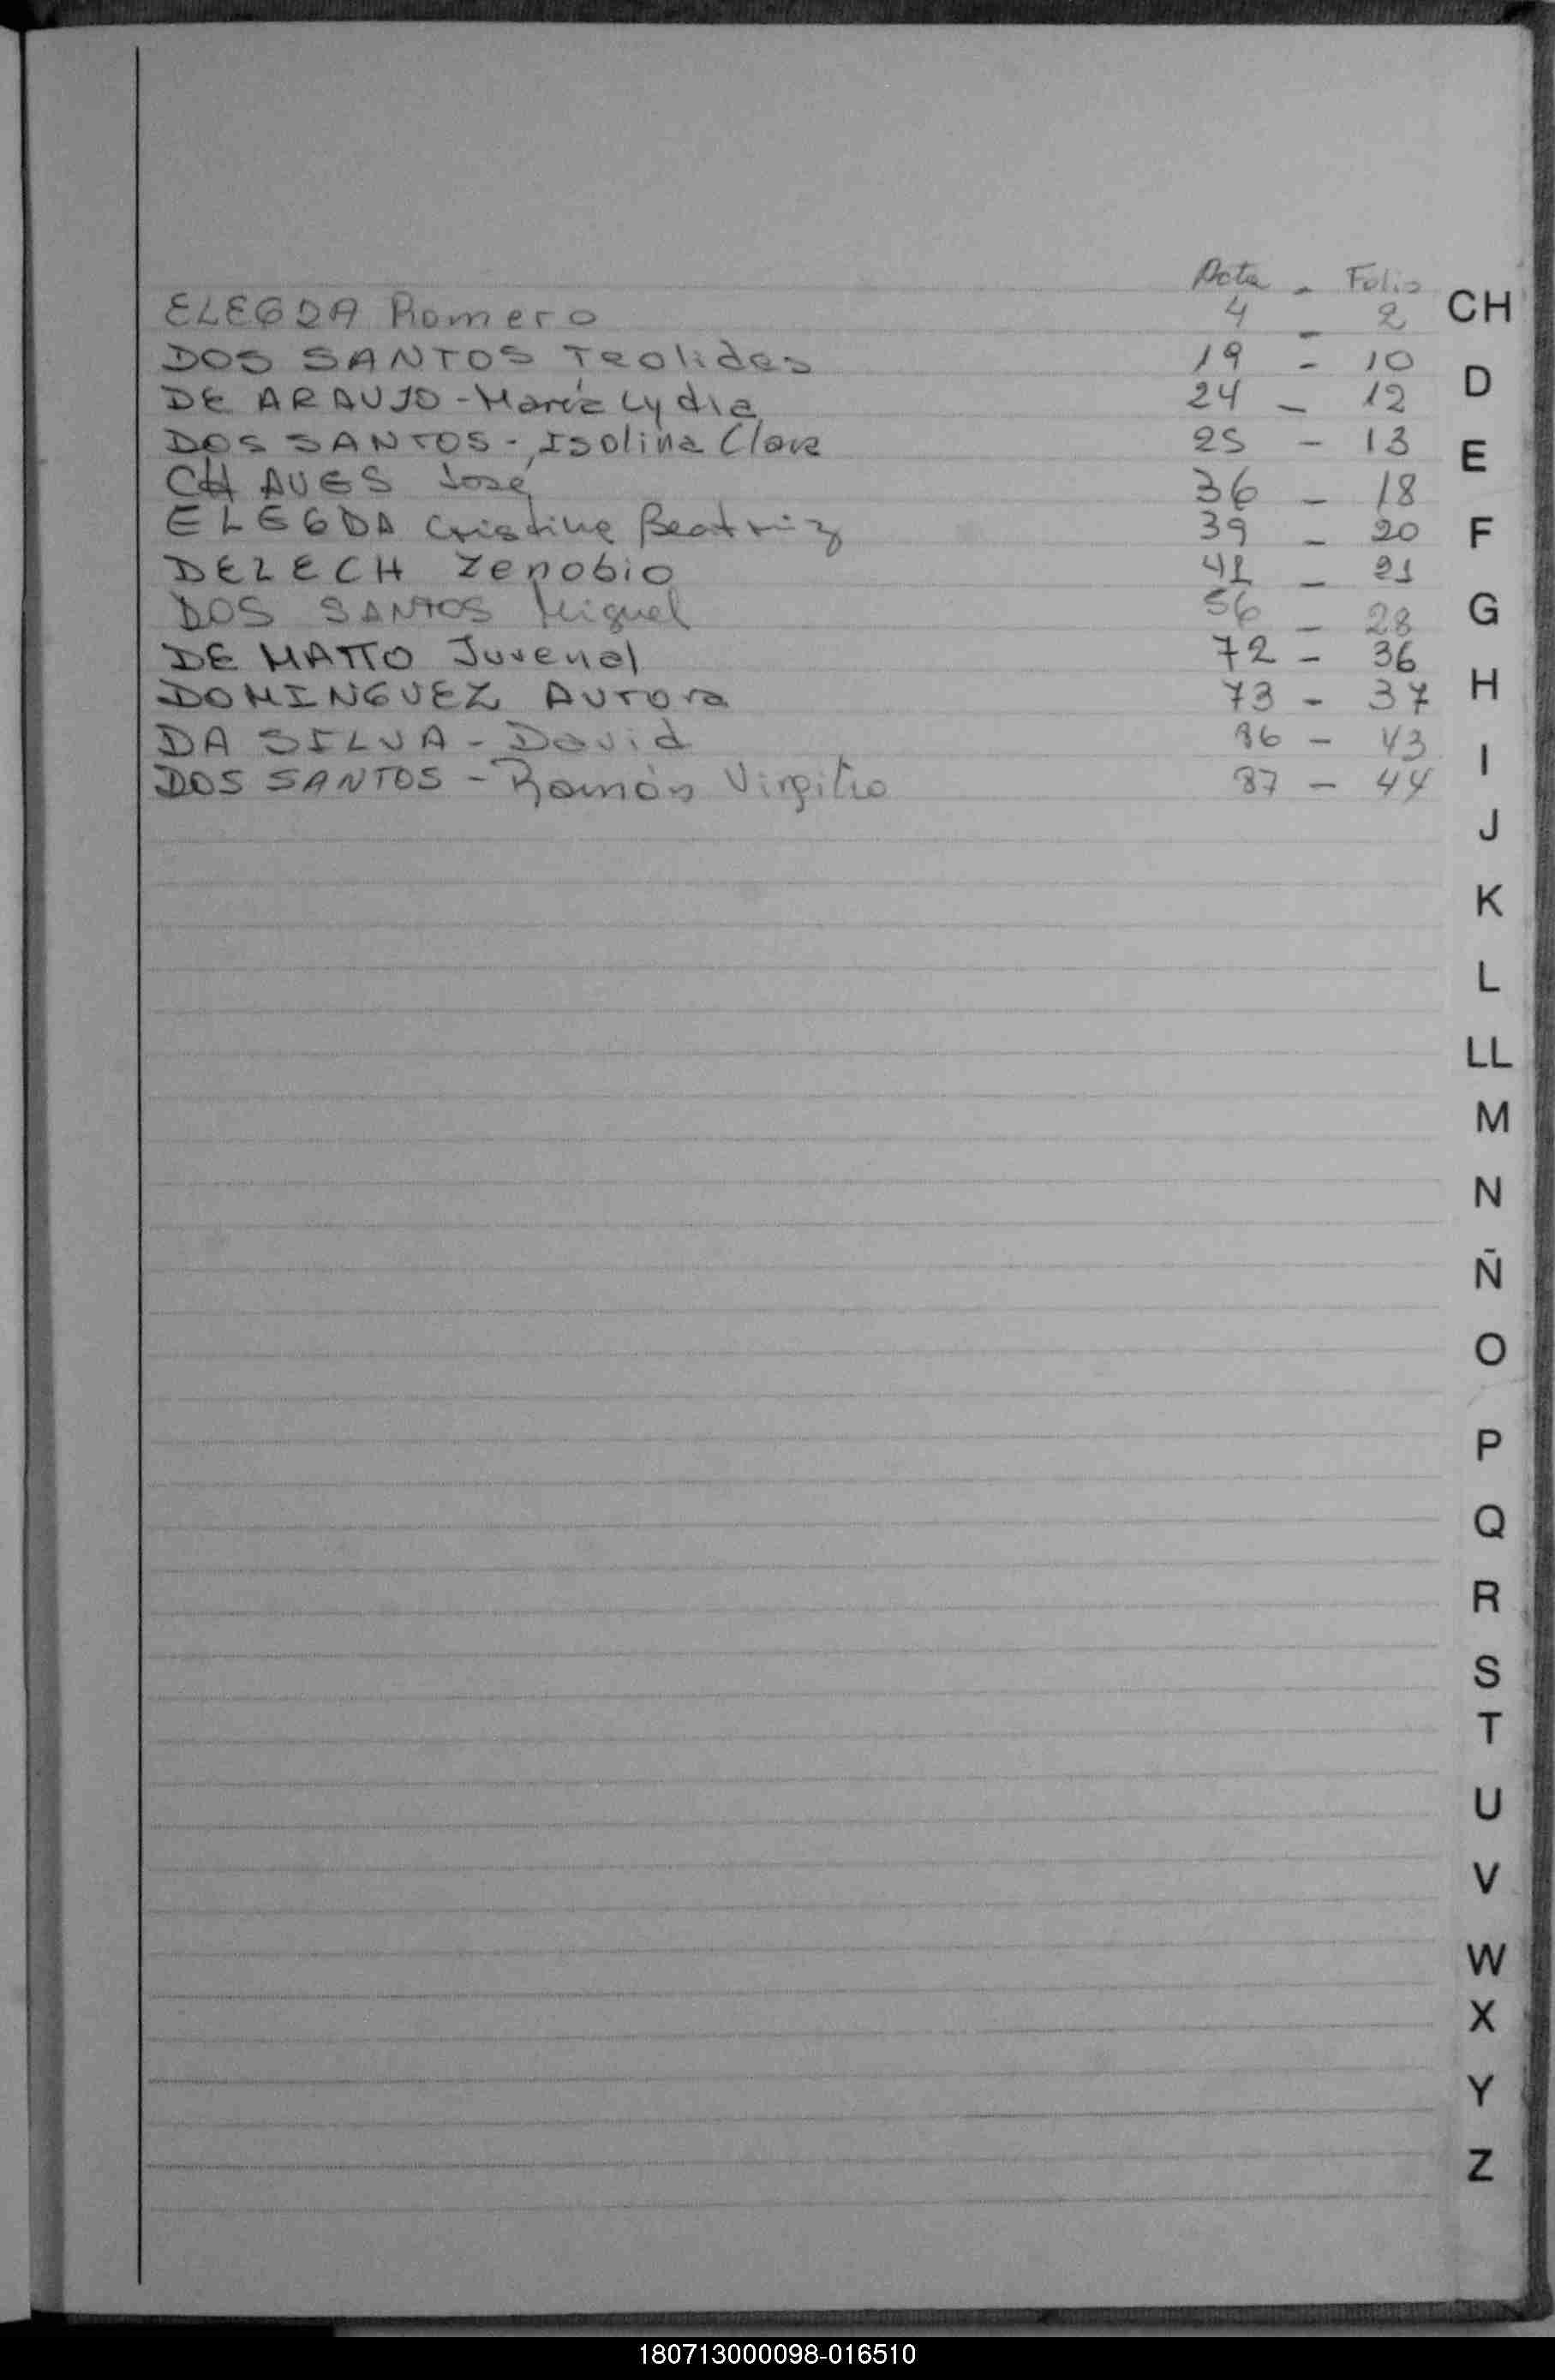 Acta - Folio
ELEGDA Romero 4 - 2
DOS SANTOS Teolides 19 - 10
DE ARAUJO - María Lydia 24 - 12
DOS SANTOS - Isolina Clara 25 - 13
CHAVES José 36 - 18
ELEGDA Cristina Beatriz 39 - 20
DELECH Zenobio 41 - 21
DOS SANTOS Miguel 56 - 28
DE MATTO Juvenal 72 - 36
DOMINGUEZ Aurora 73 - 37
DA SILVA - David 86 - 43
DOS SANTOS - Ramón Virgilio 87 - 44
CH
D
E
F
G
H
I
J
K
L
LL
M
N
Ñ
O
P
Q
R
S
T
U
V
W
X
Y
Z
180713000098-016510